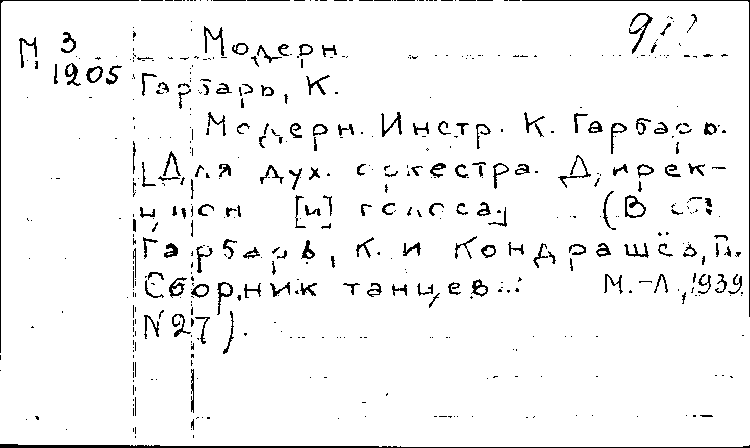 М 3 Модерн
1205
Гарбарь, К.
Модерн. Инстр. К. Гарбарь.
[Для дух. оркестра. Дирек-
цион [и] голоса] (В сб:
Гарбарь, К. и Кондрашёв, П.
Сборник танцев...: М.-Л., 1939.
N27).